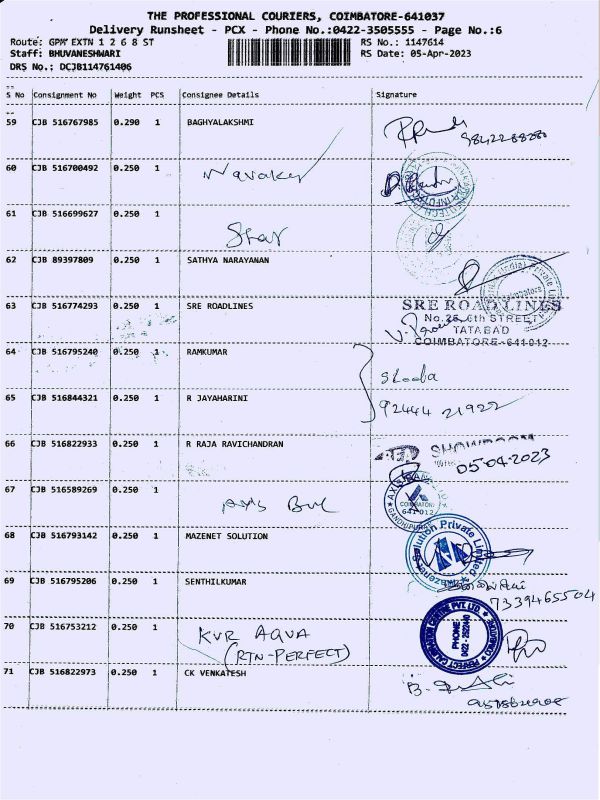 THE PROFESSIONAL COURIERS, COIMBATORE-641037
Delivery Runsheet - PCX - Phone No.:0422-3505555 - Page No.:6
Route: GPM EXTN 1 2 6 8 ST RS No.: 1147614
Staff: BHUVANESHWARI RS Date: 05-Apr-2023
DRS No.: DCJB114761406
S No Consignment No Weight PCS Consignee Details Signature
59 CJB 516767985 0.290 1 BAGHYALAKSHMI
9842288280
60 CJB 516700492 0.250 1
61 CJB 516699627 0.250 1
Star
62 CJB 89397809 0.250 1 SATHYA NARAYANAN
63 CJB 516774293 0.250 1 SRE ROADLINES
SRE ROAD LINES
No.26, 6th STREET
TATABAD
COIMBATORE-641 012
64 CJB 516795240 0.250 1 RAMKUMAR
65 CJB 516844321 0.250 1 R JAYAHARINI
92444 21922
66 CJB 516822933 0.250 1 R RAJA RAVICHANDRAN
SHOWROOM
05-04-2023
67 CJB 516589269 0.250 1
COIMBATORE
641 012
68 CJB 516793142 0.250 1 MAZENET SOLUTION
Mazenet Solution Private Limited
69 CJB 516795206 0.250 1 SENTHILKUMAR
7339465504
70 CJB 516753212 0.250 1 KVR AQUA
(RTN-PERFECT)
PERFECT CALIBRATION CENTRE PVT. LTD.
PHONE
COIMBATORE
71 CJB 516822973 0.250 1 CK VENKATESH